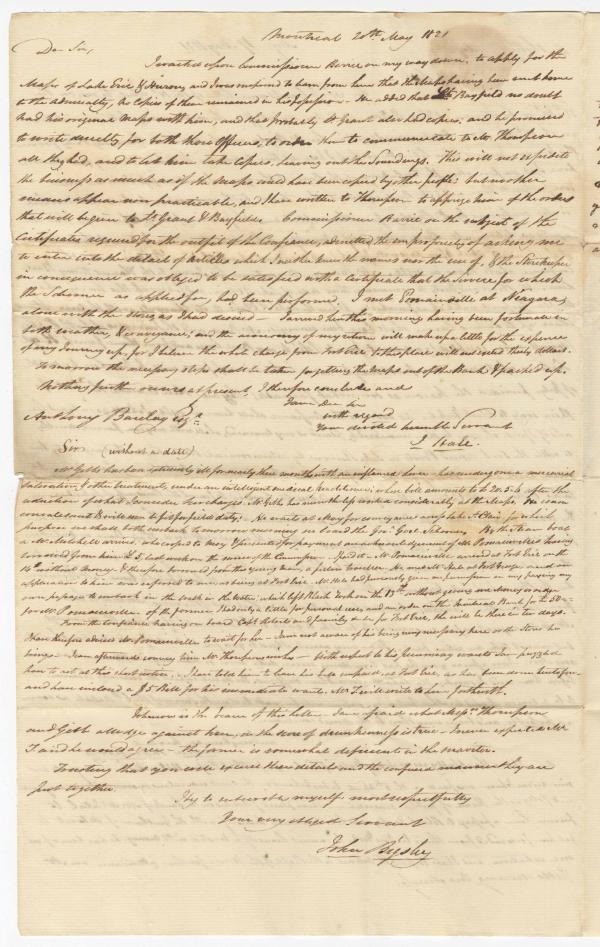 Montreal 20th May 1821
Dear Sir,
I waited upon Commissioner Barrie on my way down, to apply for the
Maps of Lake Erie & Huron, and I was informed by them from here that the Maps having been sent home
to the admiralty, no Copies of them remained in his possession - He added that Lt Bayfield no doubt
had his original Maps with him, and that probably Lt Grant also had copies, and he promised
to write directly, for both those Officers, to order them to communicate to Mr Thompson
all they had, and to let him take Copies, leaving out the Soundings. This will not expedite
the business as much as if the Maps could have been copied by other people; but no other
means appear now practicable, and I have written to Thompson to apprize him of the orders
that will be given to Lt Grant & Bayfield. Commissioner Barrie on the subject of the
Certificates required for the outfit of the Confiance, admitted the impropriety of asking me
to enter into the detail of Articles which I neither knew the names nor the use of, & the Storekeeper
in consequence was obliged to be satisfied with a Certificate that the Service for which
the Schooner was applied for, had been performed. I met Pomainville at Niagara,
alone with the Stores as I had desired - I arrived here this morning having been fortunate in
both weather, & conveyance; and the economy of my return will make up a little for the expence
of my Journey up, for I believe the whole charge from Fort Erie to this place will not exceed thirty dollars.
Tomorrow the necessary steps shall be taken for getting the Maps out of the Bank & packed up.
Nothing further occurs at present, I therefore conclude and
I am Dear Sir
with regard
Anthony Barclay Esqr.
Your devoted humble Servant
J Hale.
Sir (without a date)
Mr Gibbs has been extensively ill for nearly three months with an inflamed liver - has undergone a mercurial
Salivation & other treatments, under an intelligent medical Practitioner; whose bill amounts to £20.5.6 after the
deduction of what I consider overcharges. Mr Gibbs has nevertheless worked considerably at the Maps. He is now
convalescent & will soon be fit for field duty. He waits at Moy for conveyance up Lake St Clair for which
purpose we shall both embark to-morrow morning on board the Govt Schooner. By the Steam boat
a Mr Mitchell arrived, who came to Moy & presented for payment an acknowledgement of Mr Pomainville's having
borrowed from him £5, last week on the score of the Commission. I paid it - Mr Pomainville arrived at Fort Erie on the
14th without money & therefore borrowed from this young man, a fellow traveller. He met Mr Hale at Fort George and on
application to him was referred to me as being at Fort Erie. Mr Hale had previously given me permission on my paying my
own passage to embark in the Walk in the Water which left Black Rock on the 13th without giving me Money or order
for Mr Pomainville. Of the former I had only a little for personal uses, and an order on the Montreal Bank for £50 -
From the Confiance having on board Capt Roberts and family & for Fort Erie, she will be there in ten days.
I can therefore advise Mr Pomainville to wait for her - I am not aware of his being very necessary here or the Stores he
brings - I can afterwards convey him Mr Thompson's wishes - With respect to his pecuniary wants I am puzzled
how to act at this short notice. I have told him to leave his bills unpaid, at Fort Erie, as has been done heretofore
and have enclosed a $5 Bill for his immediate wants. Mr T will write to him forthwith.
Johnson is the bearer of this letter - I am afraid what Messrs Thompson
and Gibb alledge against him, on the score of drunkenness is true - I never expected Mr
T and he would agree - the former is somewhat deficient in the master.
Trusting that you will excuse these details and the confused manner they are
put together.
I beg to subscribe myself most respectfully
Your very obliged Servant
John Bigsby